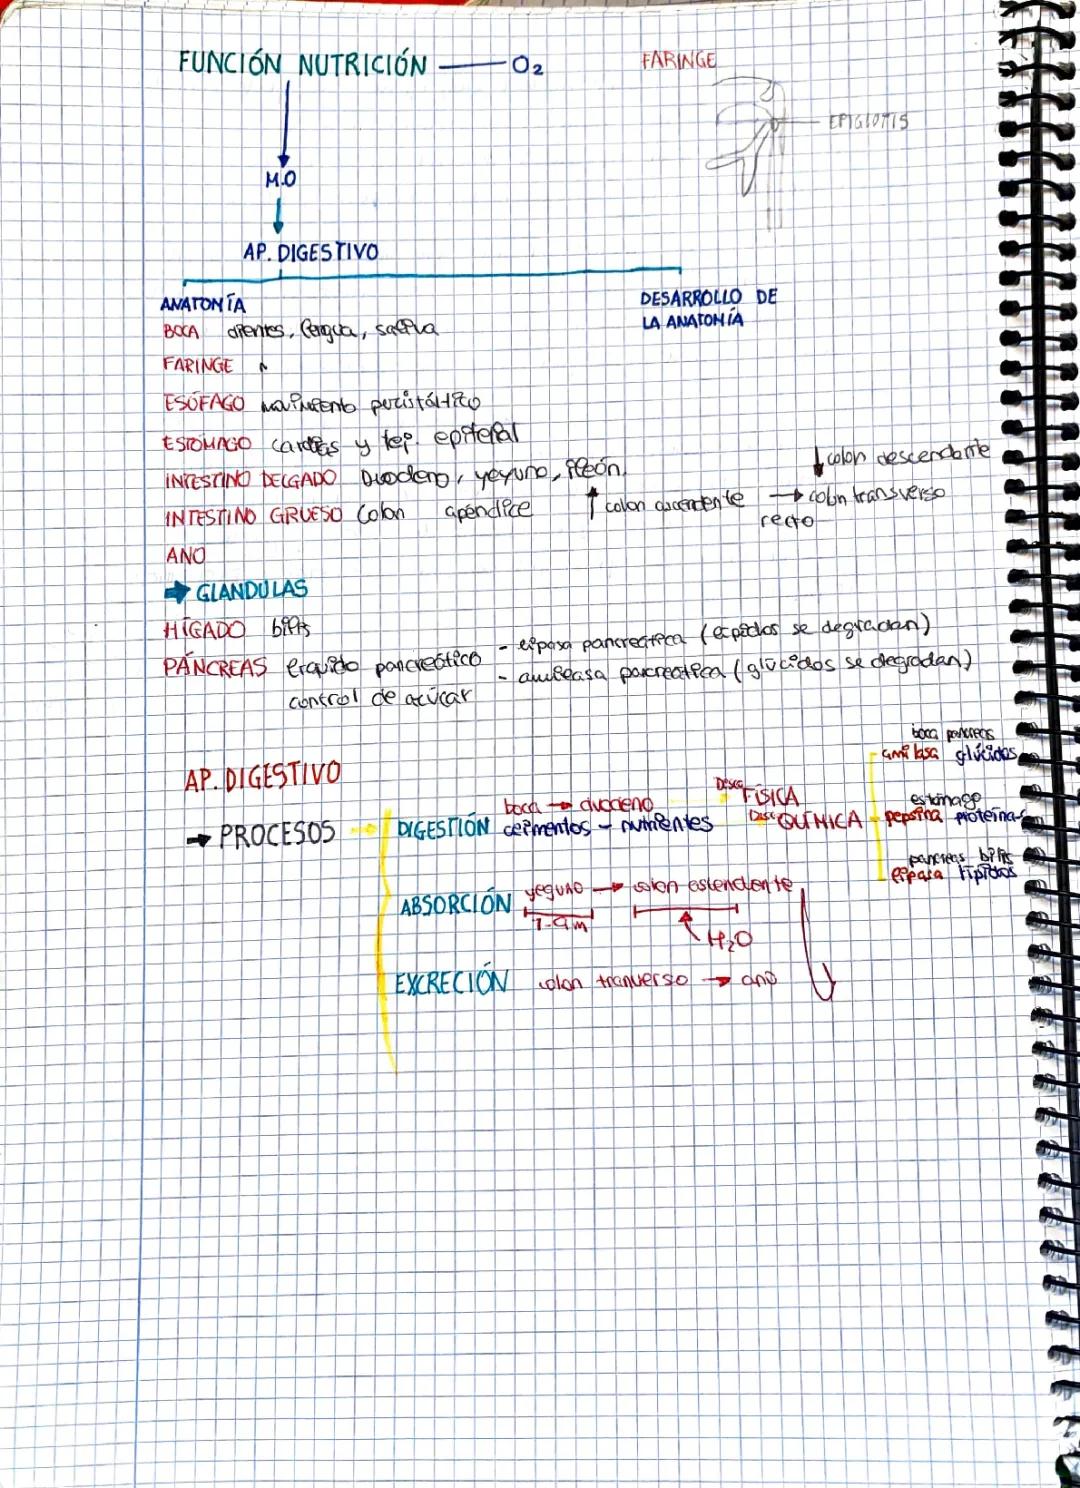 FUNCIÓN NUTRICIÓN — O2
FARINGE
EPIGLOTIS
M.O
AP. DIGESTIVO
ANATOMÍA
DESARROLLO DE
LA ANATOMÍA
BOCA dientes, lengua, saliva
FARINGE
ESÓFAGO movimiento peristáltico
ESTÓMAGO cardias y tej. epitelial
INTESTINO DELGADO Duodeno, yeyuno, íleón.
↓ colon descendante
INTESTINO GRUESO Colon apéndice ↑ colon ascendente → colon transverso
recto
ANO
→ GLANDULAS
HÍGADO bilis
PÁNCREAS líquido pancreático - lipasa pancreatica (lípidos se degradan)
control de azúcar - amilasa pancreatica (glúcidos se degradan)
AP. DIGESTIVO
→ PROCESOS
DIGESTIÓN boca → duodeno
alimentos - nutrientes
Desc FÍSICA
Desc QUÍMICA
boca páncreas
amilasa glúcidos
estómago
pepsina proteínas
páncreas bilis
lipasa lípidos
ABSORCIÓN yeguno → colon estendente
7-9m
H2O
EXCRECIÓN colon tranverso → ano